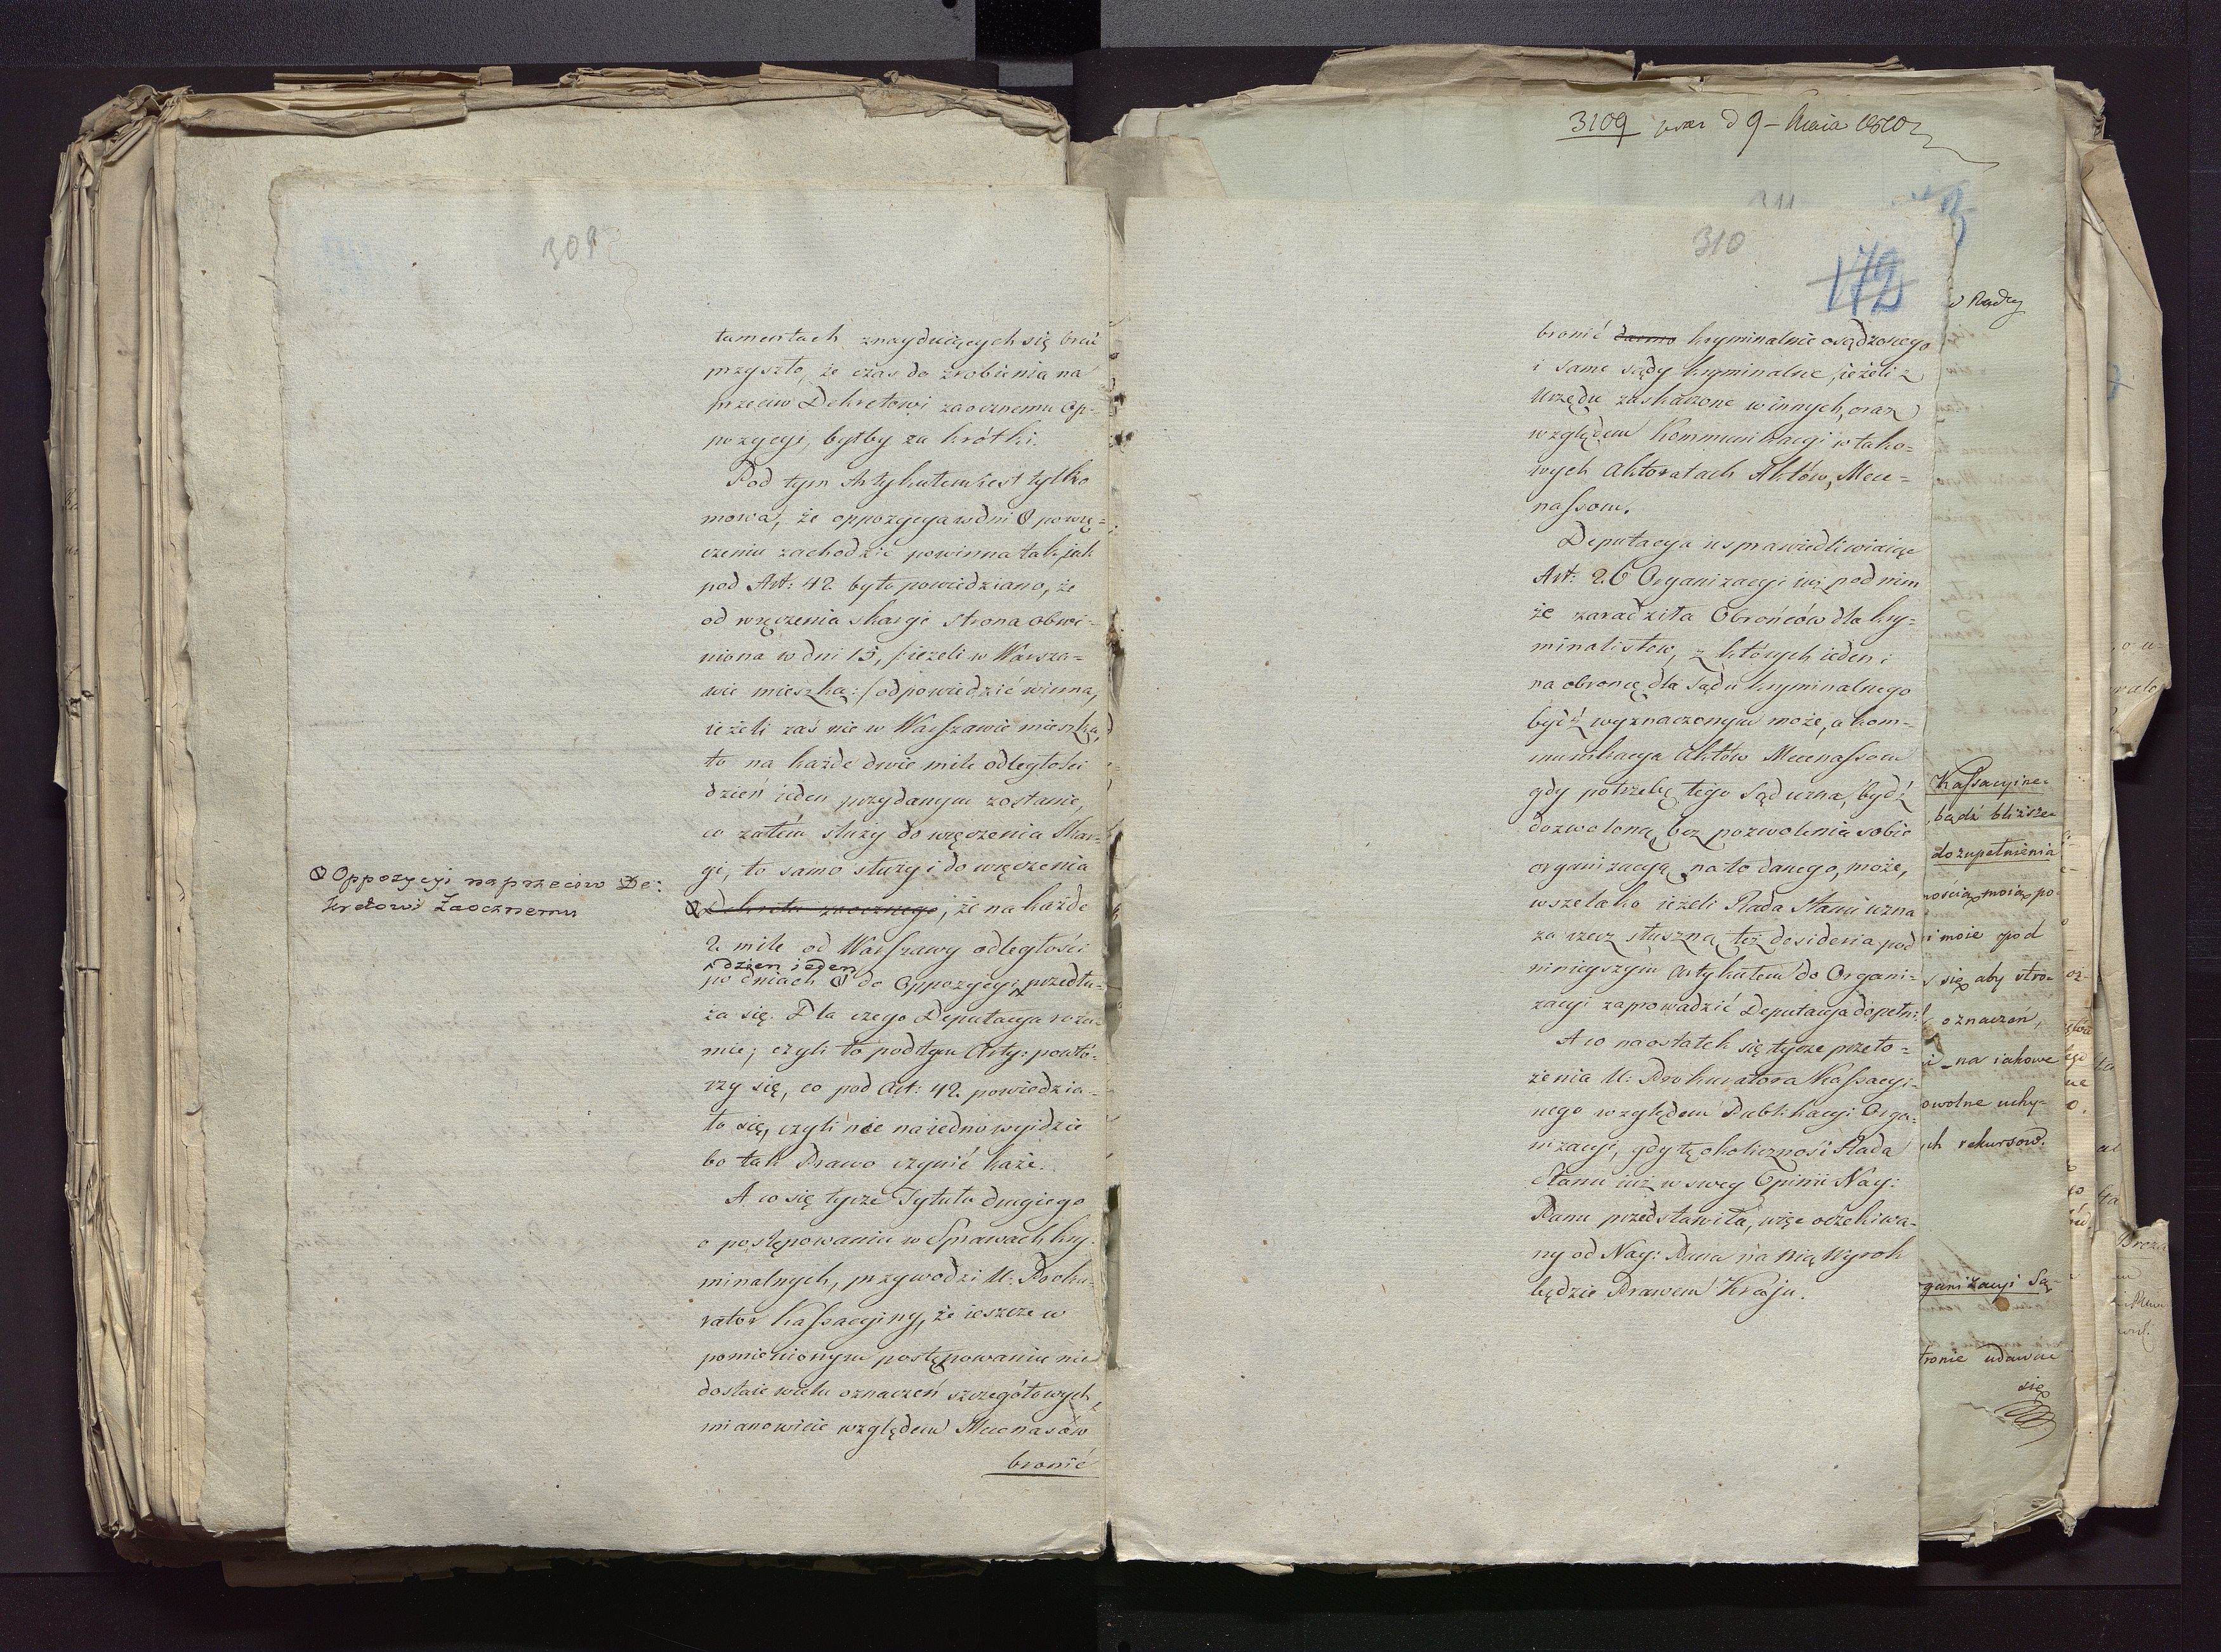 309
tamentach znayduiących się brać
przyszło, że czas do zrobienia na
przeciw Dekretowi zaocznemu Op-
pozycyi, byłby za krótki.
Pod tym Artykułem iest tylko
mowa, że oppozycya w dni 8 po wrę=
czeniu zachodzić powinna tak, jak
pod Art: 42 było powiedziano, że
od wręczenia skargi strona obwi-
niona w dni 15, /:ieżeli w Warsza=
wie mieszka:/ odpowiedzić winna,
ieżeli zaś nie w Warszawie mieszka,
to na każde dwie mile odległości
dzień ieden przydanym zostanie,
co zatém służy do wręczenia Skar-
gi, to samo służy i do wręczenia
Oppozycyi naprzeciw De:
kretowi Zaocznemu
Dekretu zaocznego, że na każde
2 mile od Warszawy odległości
dzien ieden
po dniach 8 do Oppozycyi przedłu-
ża się. Dla czego Deputacya rozu-
mie, czyli to pod tym Arty: powtó-
rzy się, co pod Art: 42 powiedzia-
ło się, czyli nie na iedno wyidzie
bo tak Prawo czynić każe.
A co się tycze Tytułu drugiego
o postępowaniu w Sprawach kry-
minalnych, przywodzi U: Proku-
rator Kassacyiny, że ieszcze w
pomienionym postępowaniu nie
dostaie wielu oznaczeń szczegółowych,
mianowicie względem Mecenasów
bronić
3109 d 9 - Maia 1810
311
310
172
bronić darmo kryminalnie osądzonego
i same sądy kryminalne, ieżeli z
Urzędu zaskarzone w innych, oraz
względem Kommunikacyi w tako=
wych Aktoratach Aktów, Mece=
nassom.
Deputacya usprawiedliwiaiąc
Art: 26 Organizacyi iuż pod nim
że zaradziła Obrońców dla kry=
minalistów, z których ieden i
na obronę dla sądu kryminalnego
bydź wyznaczonym może, a kom-
munikacya Aktów Mecenassom
gdy potrzebę tego Sąd uzna, bydź
dozwoloną bez pozwolenia sobie
organizacyą na to danego, może,
wszelako ieżeli Rada Stanu uzna
za rzecz słuszną też desideria pod
ninieyszym Artykułem do Organi-
zacyi zaprowadzić Deputacya dopełni.
A co na ostatek się tycze przeło=
żenia U: Prokuratora Kassacyi-
nego względem Publikacyi Orga-
nizacyi, gdy tę okoliczność Rada
Stanu iuż w swey Opinii Nay:
Panu przedstawiła, więc oczekiwa-
ny od Nay: Pana na nią Wyrok
będzie Prawem Kraju.
Rady
Kassacyine-
bądź bliższe
do zupełnienia
nością moią po-
i moie pod
się aby stro-
oznaczeń,
na iakowe
owolne uchy-
ch rekursow.
rganizacyi Są-
tronie udawać
się